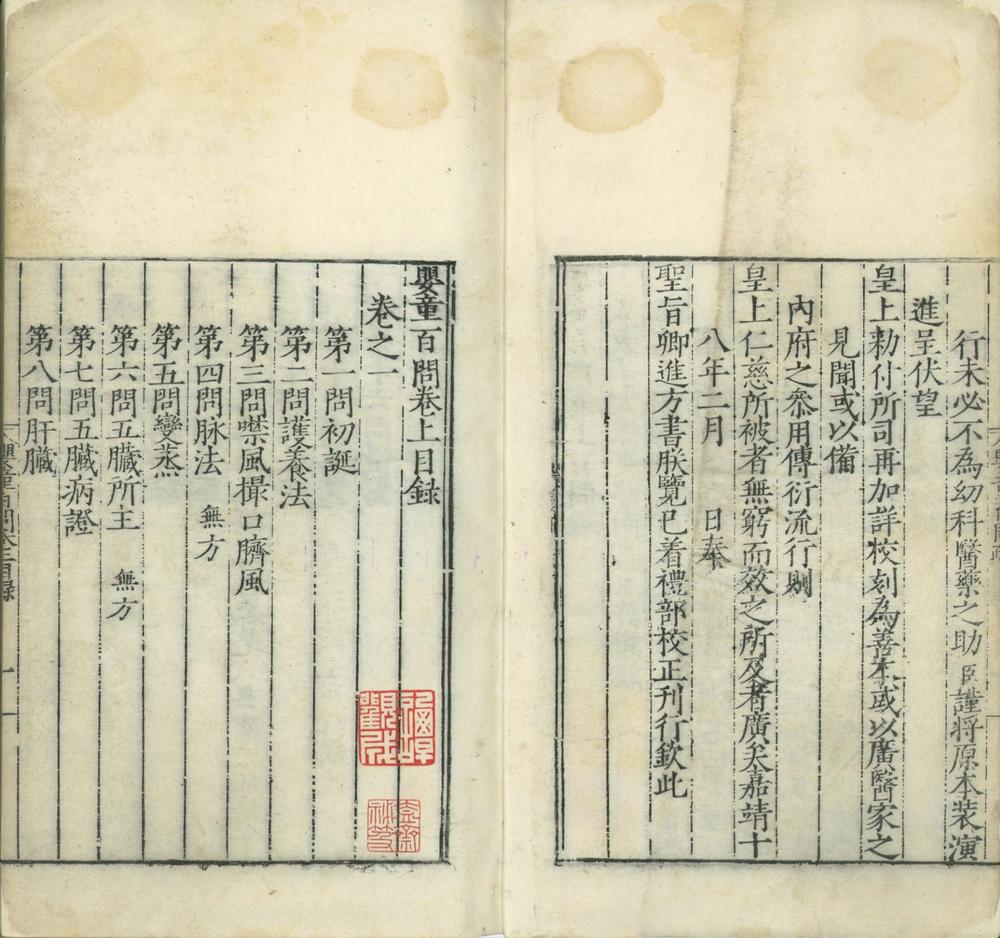 行未必不為幼科醫藥之助臣謹將原本装演
進呈伏望
皇上勑付所司再加詳校刻為善本或以廣醫家之
見聞或以備
內府之叅用傳衍流行則
皇上仁慈所被者無窮而效之所及者廣矣嘉靖十
八年二月 日奏
聖旨卿進方書朕覽已着禮部校正刊行欽此
嬰童百問卷上目録
卷之一
第一問初誕
第二問護養法
第三問噤風撮口臍風
第四問脉法 無方
第五問變蒸
第六問五臟所主 無方
第七問五臟病證
第八問肝臟